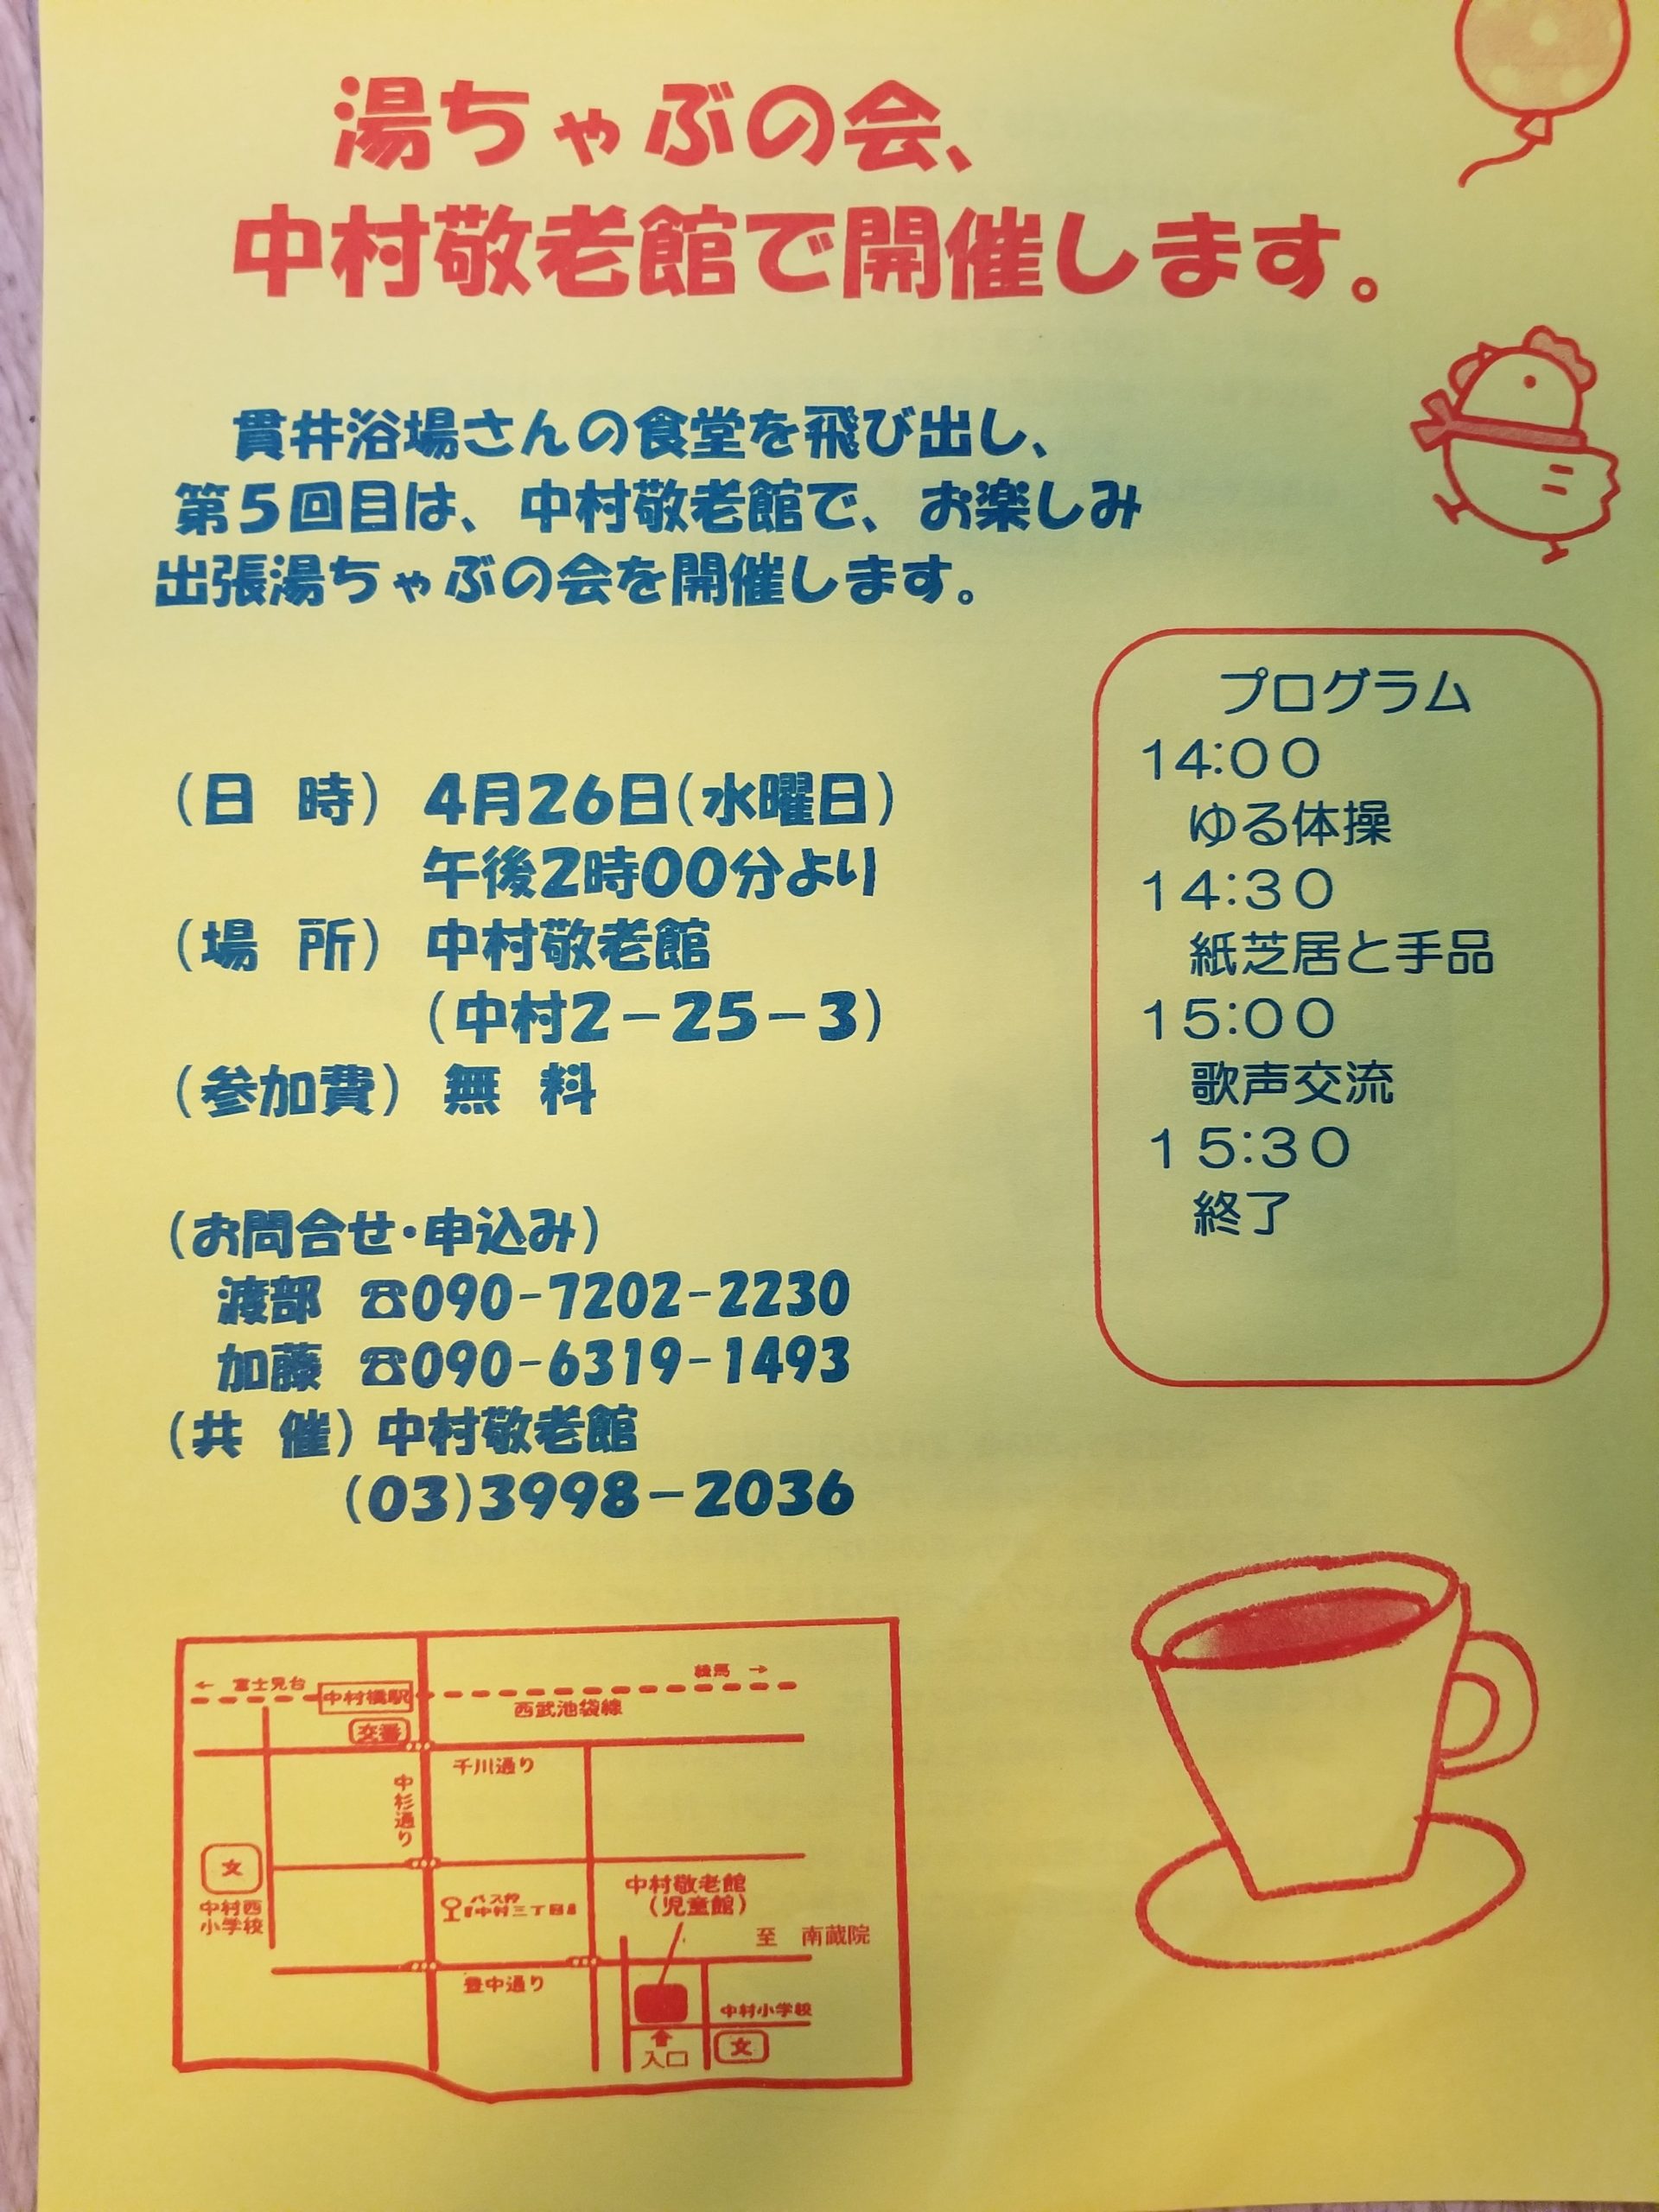 湯ちゃぶの会、
中村敬老館で開催します。
貫井浴場さんの食堂を飛び出し、
第5回目は、中村敬老館で、お楽しみ
出張湯ちゃぶの会を開催します。
(日 時) 4月26日(水曜日)
午後2時00分より
(場 所) 中村敬老館
(中村2-25-3)
(参加費) 無 料
(お問合せ・申込み)
渡部 ☎090-7202-2230
加藤 ☎090-6319-1493
(共 催) 中村敬老館
(03)3998-2036
プログラム
14:00
ゆる体操
14:30
紙芝居と手品
15:00
歌声交流
15:30
終了
← 富士見台
練馬 →
中村橋駅
西武池袋線
交番
千川通り
中杉通り
文
中村西
小学校
バス停
中村三丁目
中村敬老館
(児童館)
至 南蔵院
豊中通り
中村小学校
入口
文